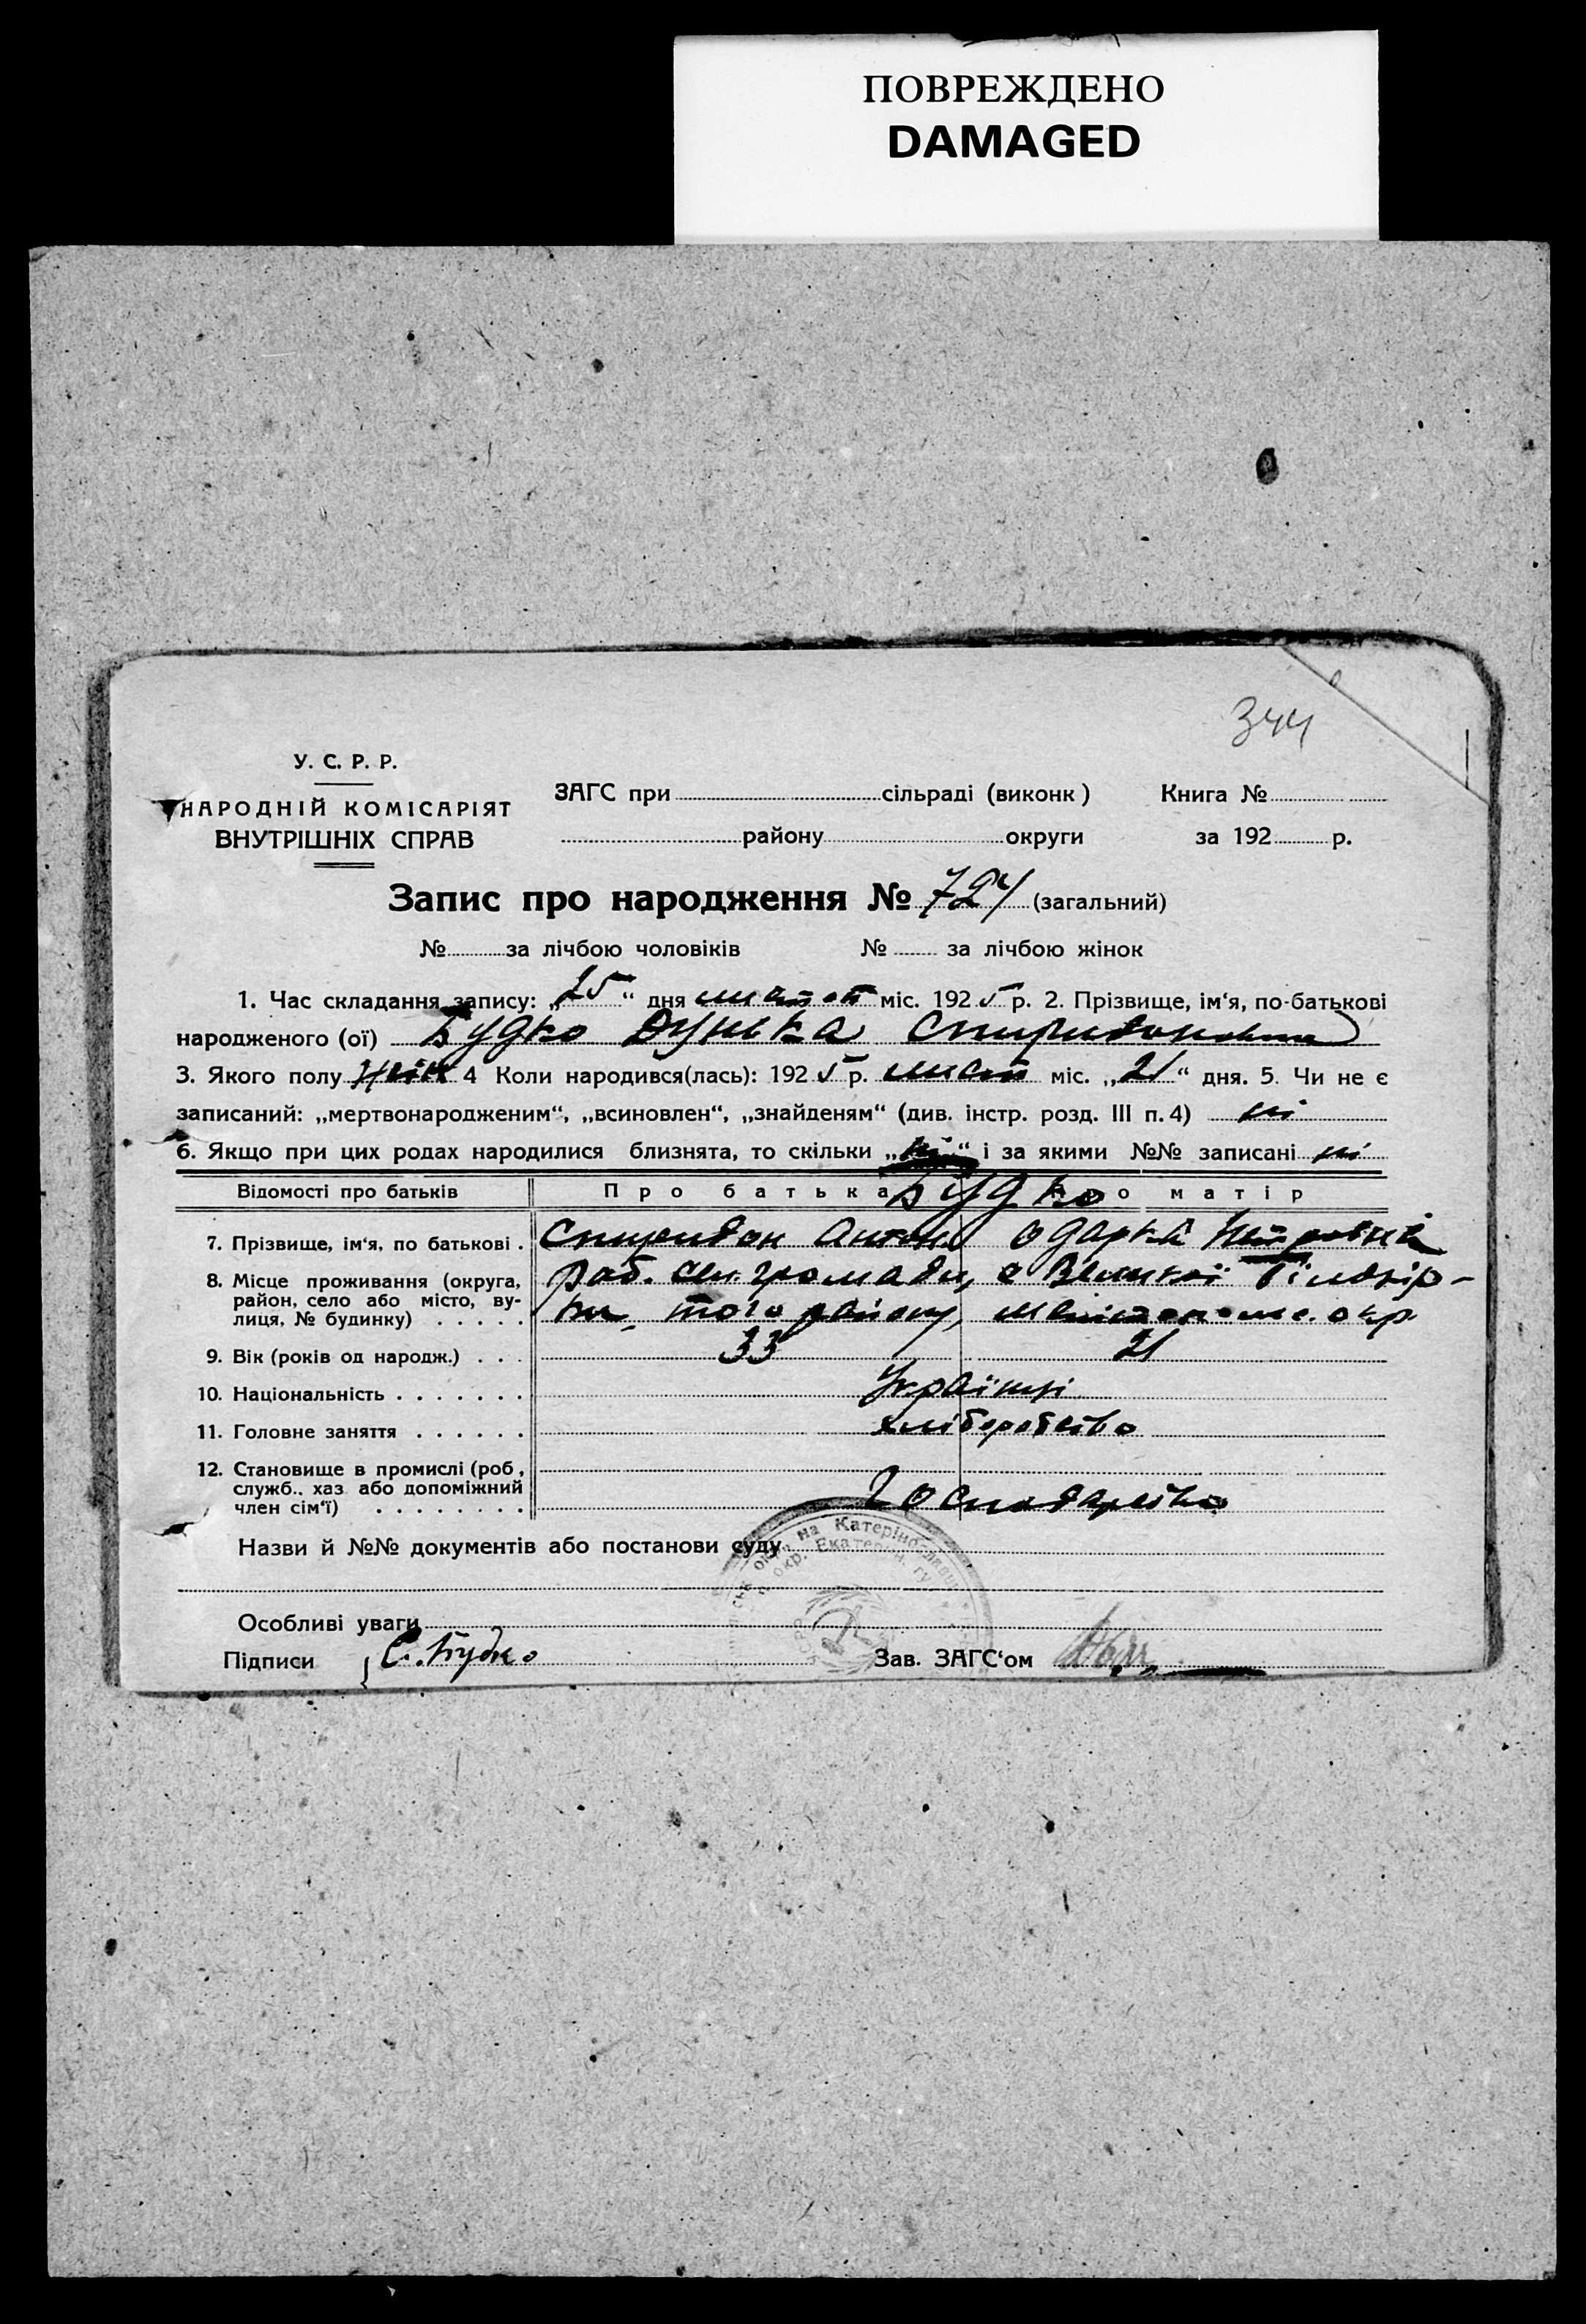 ПОВРЕЖДЕНО
DAMAGED
344
У. С. Р. Р.
НАРОДНІЙ КОМІСАРІЯТ
ВНУТРІШНІХ СПРАВ
ЗАГС при сільраді (виконк) Книга №
району округи за 192 р.
Запис про народження № 724 (загальний)
№ за лічбою чоловіків № за лічбою жінок
1. Час складання запису: „25“ дня листоп міс. 1925 р. 2. Прізвище, ім‘я, по-батькові
народженого (ої) Будко Дунька Спиридоновна
3. Якого полу жін 4 Коли народився(лась): 1925 р. лист міс. „21“ дня. 5. Чи не є
записаний: „мертвонародженим“, „всиновлен“, „знайденям“ (див. інстр. розд. III п. 4) ні
6. Якщо при цих родах народилися близнята, то скільки „ні“ і за якими №№ записані ні
Відомості про батьків Про батька Будко Про матір
7. Прізвище, ім‘я, по батькові . Спиридон Антон Одарка Петровна
8. Місце проживання (округа, район, село або місто, вулиця, № будинку) . . . . . сел. громади, с Великої Білозір-
ки, того району, окр.
9. Вік (років од народж.) . . . 33 21
10. Національність . . . . . . . Українці
11. Головне заняття . . . . . . хліборобство
12. Становище в промислі (роб, служб., хаз або допоміжний член сім‘ї) . . . . . . . . Господарство
Назви й №№ документів або постанови суду
на Катеріно
окр. Екатерин. гу
Особливі уваги
Підписи { С. Будко Зав. ЗАГС‘ом